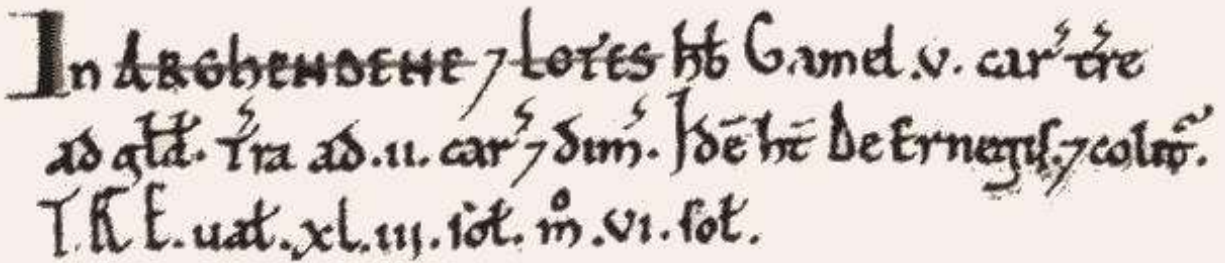 In ARGhENDENE ⁊ LOTES hƀ Gamel .v. car̉ t̉re
ad gld̄. T̉ra ad .ii. car̉ ⁊ dim̉. Idē hē De Ernegiſ. ⁊ colit̉.
T.R.E. ual̄. xl.iii. ſol̄. m̊ .vi. ſol̄.